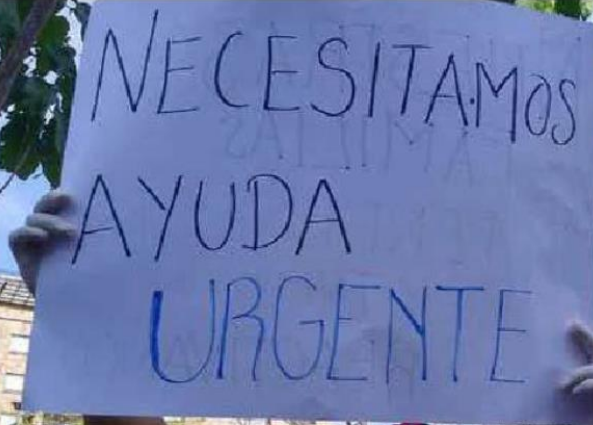 NECESITAMOS
AYUDA
URGENTE